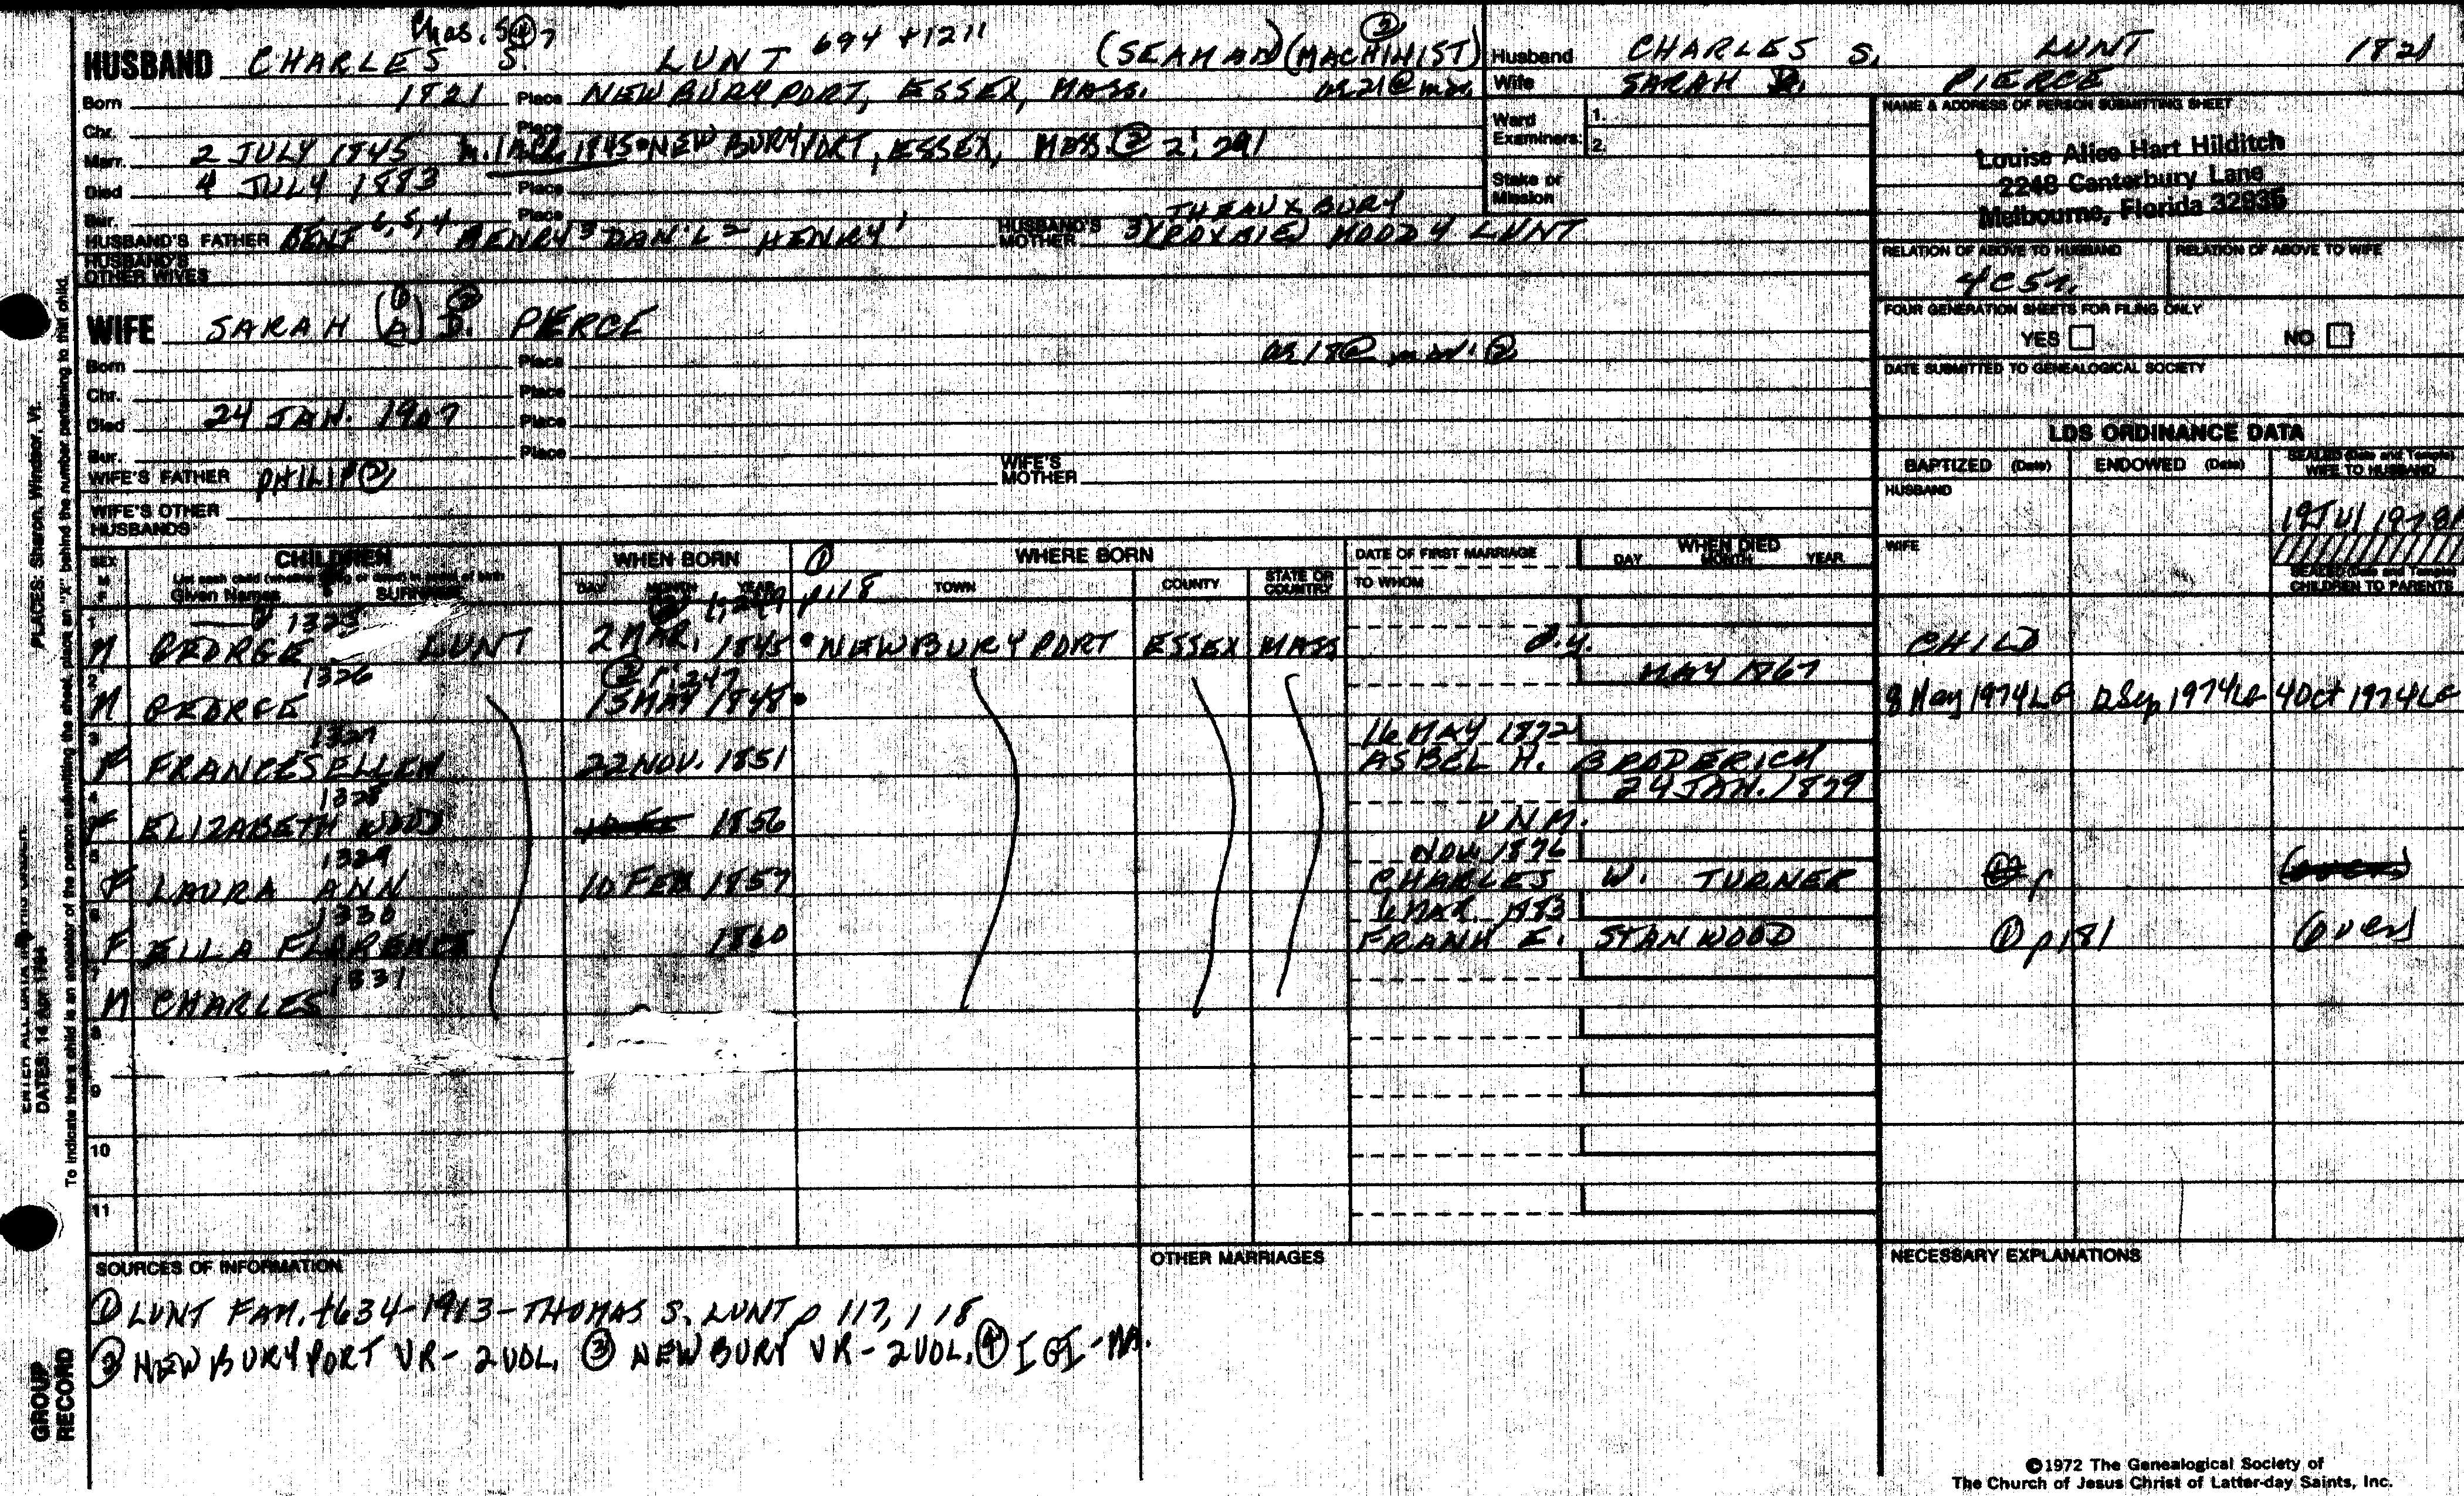 Chas. S. ④ 7
HUSBAND CHARLES S. LUNT 694 +1211 (SEAMAN) (MACHINIST) ③
Born 1821 Place NEWBURYPORT, ESSEX, MASS. ag 21 @ mar.
Chr. Place
Marr. 2 JULY 1845 1845 NEWBURYPORT, ESSEX, MASS. ② 2: 291
Died 4 JULY 1883 Place
Bur. Place
HUSBAND'S FATHER BENJ 6, 5, 4 HENRY 3 DAN'L 2 HENRY 1 HUSBAND'S MOTHER 3) (ROXBIE) MOODY LUNT
HUSBAND'S OTHER WIVES
Husband CHARLES S. LUNT 1821
Wife SARAH D. PIERCE
Ward Examiners: 1.
2.
Stake or Mission
NAME & ADDRESS OF PERSON SUBMITTING SHEET
Louise Alice Hart Hilditch
2248 Canterbury Lane
Melbourne, Florida 32935
RELATION OF ABOVE TO HUSBAND RELATION OF ABOVE TO WIFE
4C5r.
FOUR GENERATION SHEETS FOR FILING ONLY
YES NO
DATE SUBMITTED TO GENEALOGICAL SOCIETY
WIFE SARAH (A) ① D. ② PIERCE
Born Place ag 18 @ mar. ②
Chr. Place
Died 24 JAN. 1907 Place
Bur. Place
WIFE'S FATHER PHILIP ② WIFE'S MOTHER
WIFE'S OTHER HUSBANDS
LDS ORDINANCE DATA
BAPTIZED (Date) ENDOWED (Date) SEALED (Date and Temple) WIFE TO HUSBAND
HUSBAND
19 JUL 1978
WIFE
SEALED (Date and Temple) CHILDREN TO PARENTS
SEX M F
CHILDREN
List each child (whether living or dead) in order of birth
Given Names SURNAME
WHEN BORN
DAY MONTH YEAR
① p118 WHERE BORN
TOWN COUNTY STATE OR COUNTRY
DATE OF FIRST MARRIAGE
TO WHOM
WHEN DIED
DAY MONTH YEAR
1 1325
M GEORGE LUNT 2 MAR. 1845 NEWBURYPORT ESSEX MASS d.y. CHILD
2 1326 ② 1:247 MAY 1867
M GEORGE 15 MAY 1848 8 May 1974LG 12 Sep 1974LG 4 Oct 1974LG
3 1327 16 MAY 1872
F FRANCES ELLEN 22 NOV. 1851 ASBEL H. BRODERICK
4 1328 24 JAN. 1879
F ELIZABETH WOOD 1856 UNM.
5 1329 NOV 1876
F LAURA ANN 10 FEB 1857 CHARLES W. TURNER
6 1330 6 MAR. 1883
F ELLA FLORENCE 1860 FRANK E. STANWOOD ① p181 (over)
7 1331
M CHARLES
8
9
10
11
SOURCES OF INFORMATION OTHER MARRIAGES NECESSARY EXPLANATIONS
① LUNT FAM. 1634-1913 - THOMAS S. LUNT p 117, 118
② NEWBURYPORT VR - 2 VOL. ③ NEWBURY VR - 2 VOL. ④ IGI - MA.
©1972 The Genealogical Society of
The Church of Jesus Christ of Latter-day Saints, Inc.
PLACES: Sharon, Windsor, Vt.
To indicate that a child is an ancestor of the person submitting the sheet, place an "X" behind the number pertaining to that child.
DATES: 14 Apr 1794
GROUP RECORD